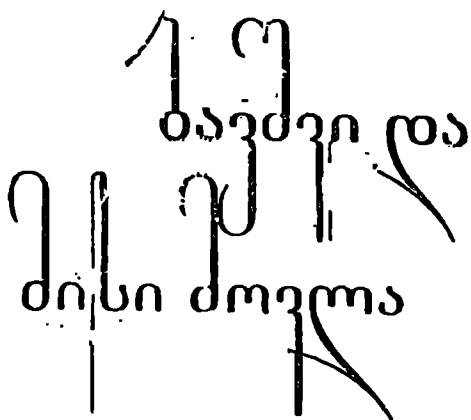 ბავშვი და
მისი მოვლა